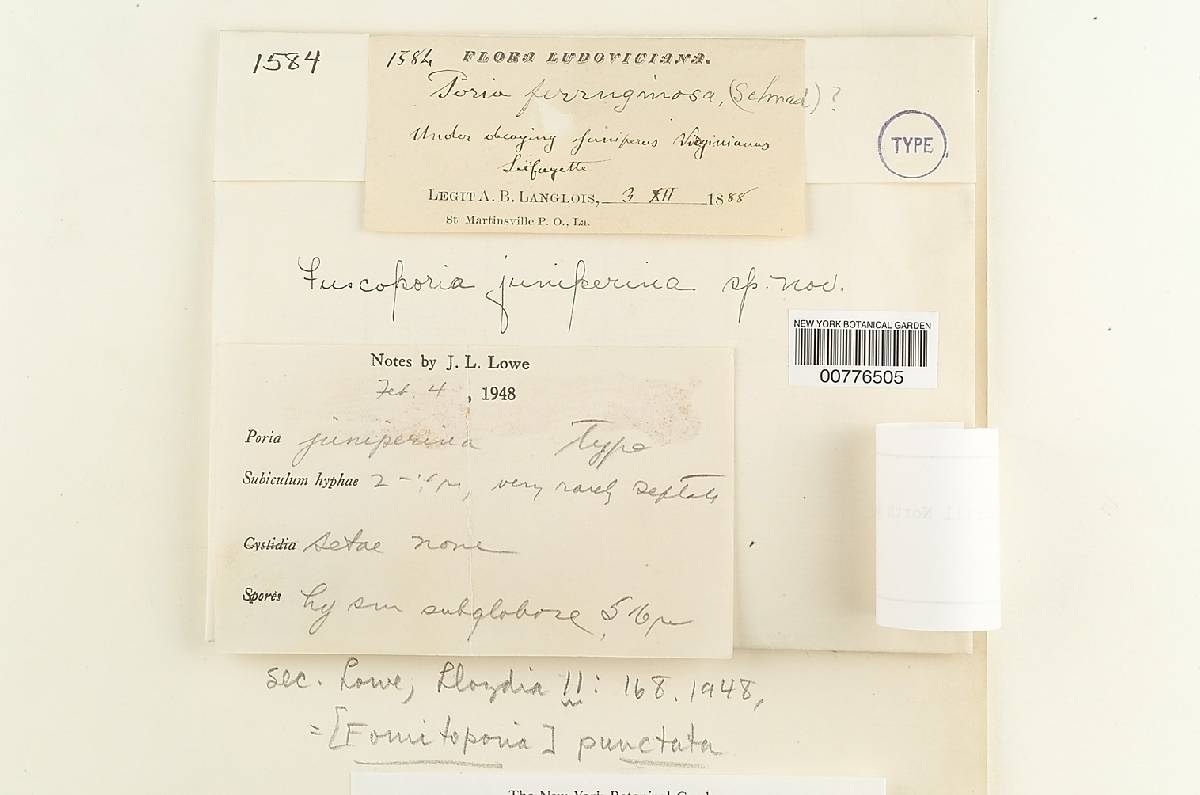 1584
1584 FLORA LUDOVICIANA.
Poria ferruginosa, (Schrad)?
Under decaying Juniperus Virginianus
Lafayette
LEGIT A. B. LANGLOIS, 3 XII 1888
St. Martinsville P. O., La.
TYPE
Fuscoporia juniperina sp. nov.
NEW YORK BOTANICAL GARDEN
00776505
Notes by J. L. Lowe
Feb. 4, 1948
Poria juniperina Type
Subiculum hyphae 2 - μ, very rarely septate
Cystidia Setae none
Spores hy sm subglobose, 5 6μ
sec. Lowe, Lloydia 11: 168. 1948,
= [Fomitoporia] punctata
The New York Botanical